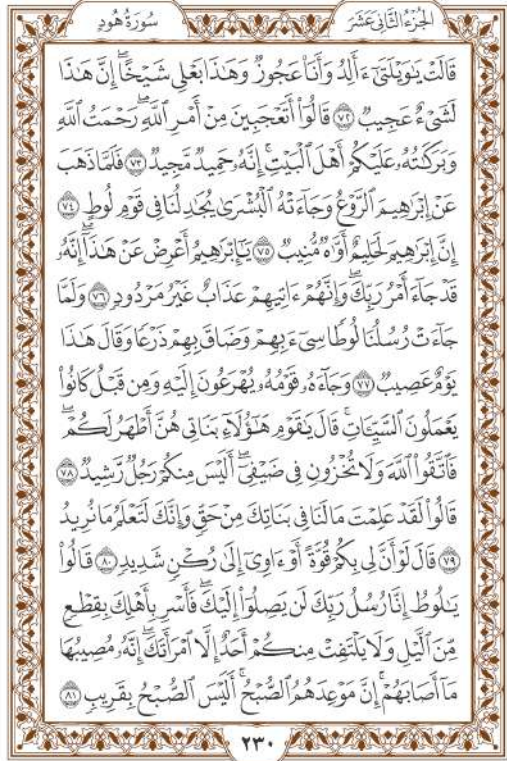 الجزء الثاني عشر
سورة هود
قَالَتْ يَٰوَيْلَتَىٰٓ ءَأَلِدُ وَأَنَا۠ عَجُوزٌ وَهَٰذَا بَعْلِى شَيْخًا ۖ إِنَّ هَٰذَا
لَشَىْءٌ عَجِيبٌ ٧٢ قَالُوٓا۟ أَتَعْجَبِينَ مِنْ أَمْرِ ٱللَّهِ ۖ رَحْمَتُ ٱللَّهِ
وَبَرَكَٰتُهُۥ عَلَيْكُمْ أَهْلَ ٱلْبَيْتِ ۚ إِنَّهُۥ حَمِيدٌ مَّجِيدٌ ٧٣ فَلَمَّا ذَهَبَ
عَنْ إِبْرَٰهِيمَ ٱلرَّوْعُ وَجَآءَتْهُ ٱلْبُشْرَىٰ يُجَٰدِلُنَا فِى قَوْمِ لُوطٍ ٧٤
إِنَّ إِبْرَٰهِيمَ لَحَلِيمٌ أَوَّٰهٌ مُّنِيبٌ ٧٥ يَٰٓإِبْرَٰهِيمُ أَعْرِضْ عَنْ هَٰذَآ ۖ إِنَّهُۥ
قَدْ جَآءَ أَمْرُ رَبِّكَ ۖ وَإِنَّهُمْ ءَاتِيهِمْ عَذَابٌ غَيْرُ مَرْدُودٍ ٧٦ وَلَمَّا
جَآءَتْ رُسُلُنَا لُوطًا سِىٓءَ بِهِمْ وَضَاقَ بِهِمْ ذَرْعًا وَقَالَ هَٰذَا
يَوْمٌ عَصِيبٌ ٧٧ وَجَآءَهُۥ قَوْمُهُۥ يُهْرَعُونَ إِلَيْهِ وَمِن قَبْلُ كَانُوا۟
يَعْمَلُونَ ٱلسَّيِّـَٔاتِ ۚ قَالَ يَٰقَوْمِ هَٰٓؤُلَآءِ بَنَاتِى هُنَّ أَطْهَرُ لَكُمْ ۖ
فَٱتَّقُوا۟ ٱللَّهَ وَلَا تُخْزُونِ فِى ضَيْفِىٓ ۖ أَلَيْسَ مِنكُمْ رَجُلٌ رَّشِيدٌ ٧٨
قَالُوا۟ لَقَدْ عَلِمْتَ مَا لَنَا فِى بَنَاتِكَ مِنْ حَقٍّ وَإِنَّكَ لَتَعْلَمُ مَا نُرِيدُ
٧٩ قَالَ لَوْ أَنَّ لِى بِكُمْ قُوَّةً أَوْ ءَاوِىٓ إِلَىٰ رُكْنٍ شَدِيدٍ ٨٠ قَالُوا۟
يَٰلُوطُ إِنَّا رُسُلُ رَبِّكَ لَن يَصِلُوٓا۟ إِلَيْكَ ۖ فَأَسْرِ بِأَهْلِكَ بِقِطْعٍ
مِّنَ ٱلَّيْلِ وَلَا يَلْتَفِتْ مِنكُمْ أَحَدٌ إِلَّا ٱمْرَأَتَكَ ۖ إِنَّهُۥ مُصِيبُهَا
مَآ أَصَابَهُمْ ۚ إِنَّ مَوْعِدَهُمُ ٱلصُّبْحُ ۚ أَلَيْسَ ٱلصُّبْحُ بِقَرِيبٍ ٨١
٢٣٠